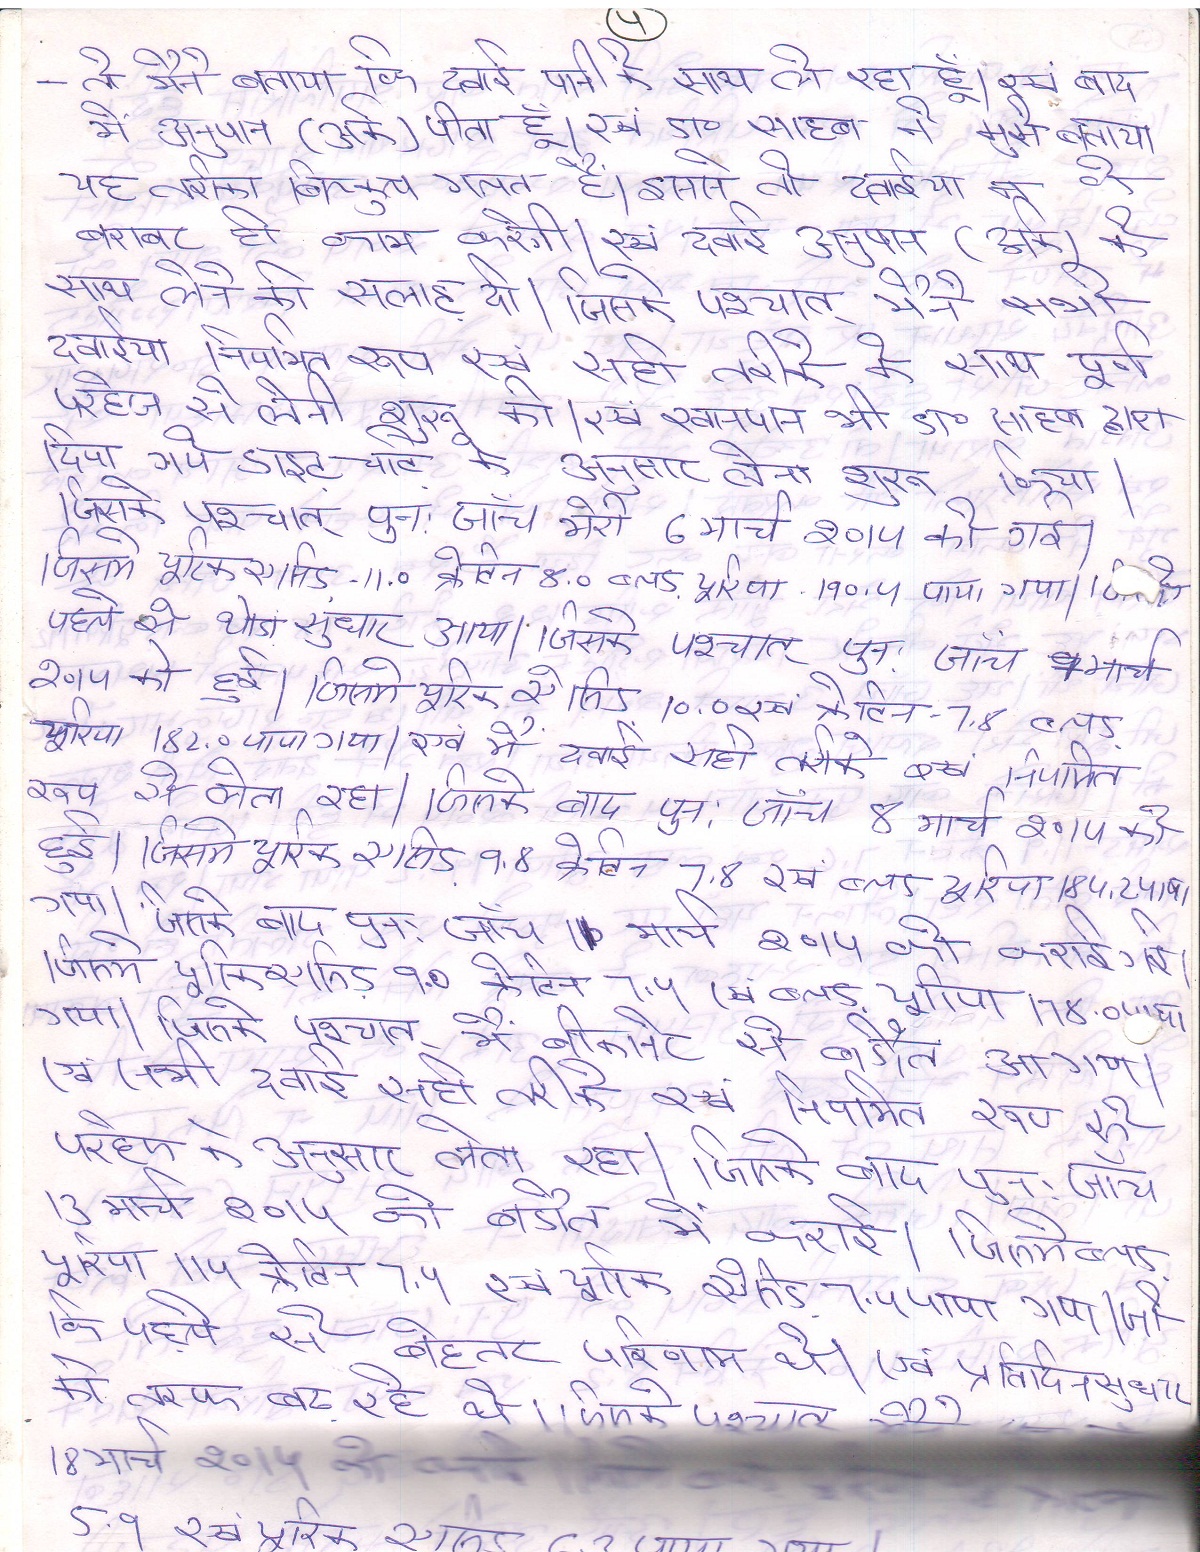 ४
- ले मैने बताया कि दवाई पानी के साथ ले रहा हूँ। एवं बाद
में अनुपान (अर्क) पीता हूँ। एवं डा० साहब ने मुझे बताया
यह तरीका बिल्कुल गलत है। इससे तो दवाईया न के
बराबर ही काम करेगी। एवं दवाई अनुपान (अर्क) के
साथ लेने की सलाह दी। जिसके पश्चात् मैने सभी
दवाईया नियमित रूप एवं सही तरीके के साथ पूर्ण
परहेज से लेनी शुरू की। एवं खानपान भी डा० साहब द्वारा
दिया गये डाइट चार्ट के अनुसार लेना शुरू किया।
जिसके पश्चात् पुन: जाँच मेरी 6 मार्च २०१५ को गई।
जिसमे यूरिक एसिड -11.0 क्रेटिन 8.0 ब्लड यूरिया 190.५ पाया गया।
पहले से थोडा सुधार आया। जिसके पश्चात् पुन: जाँच 7 मार्च
२०१५ को हुई। जिसमे यूरिक एसिड 10.0 एवं क्रेटिन -7.8 ब्लड
यूरिया 182.0 पाया गया। एवं मैं दवाई सही तरीके एवं नियमित
रूप से लेता रहा। जिसके बाद पुन: जाँच 8 मार्च २०१५ को
हुई। जिसमे यूरिक एसिड 9.8 क्रेटिन 7.8 एवं ब्लड यूरिया 18५.2 पाया
गया। जिसके बाद पुन: जाँच 11 मार्च २०१५ को कराई गई।
जिसमे यूरिक एसिड 9.0 क्रेटिन 7.५ एवं ब्लड यूरिया 178.0 पाया
गया। जिसके पश्चात् मैं बीकानेर से बडौत आ गया।
एवं सभी दवाई सही तरीके एवं नियमित रूप से
परहेज के अनुसार लेता रहा। जिसके बाद पुन: जाँच
13 मार्च २०१५ को बडौत में कराई। जिसमे ब्लड
यूरिया 11५ क्रेटिन 7.५ एवं यूरिक एसिड 7.५ पाया गया। जो
कि पहले से बेहतर परिणाम थे। एवं प्रतिदिन सुधार
की तरफ बढ रहे थे। जिसके पश्चात्
18 मार्च २०१५ को
5.9 एवं यूरिक एसिड 6.2 पाया गया।